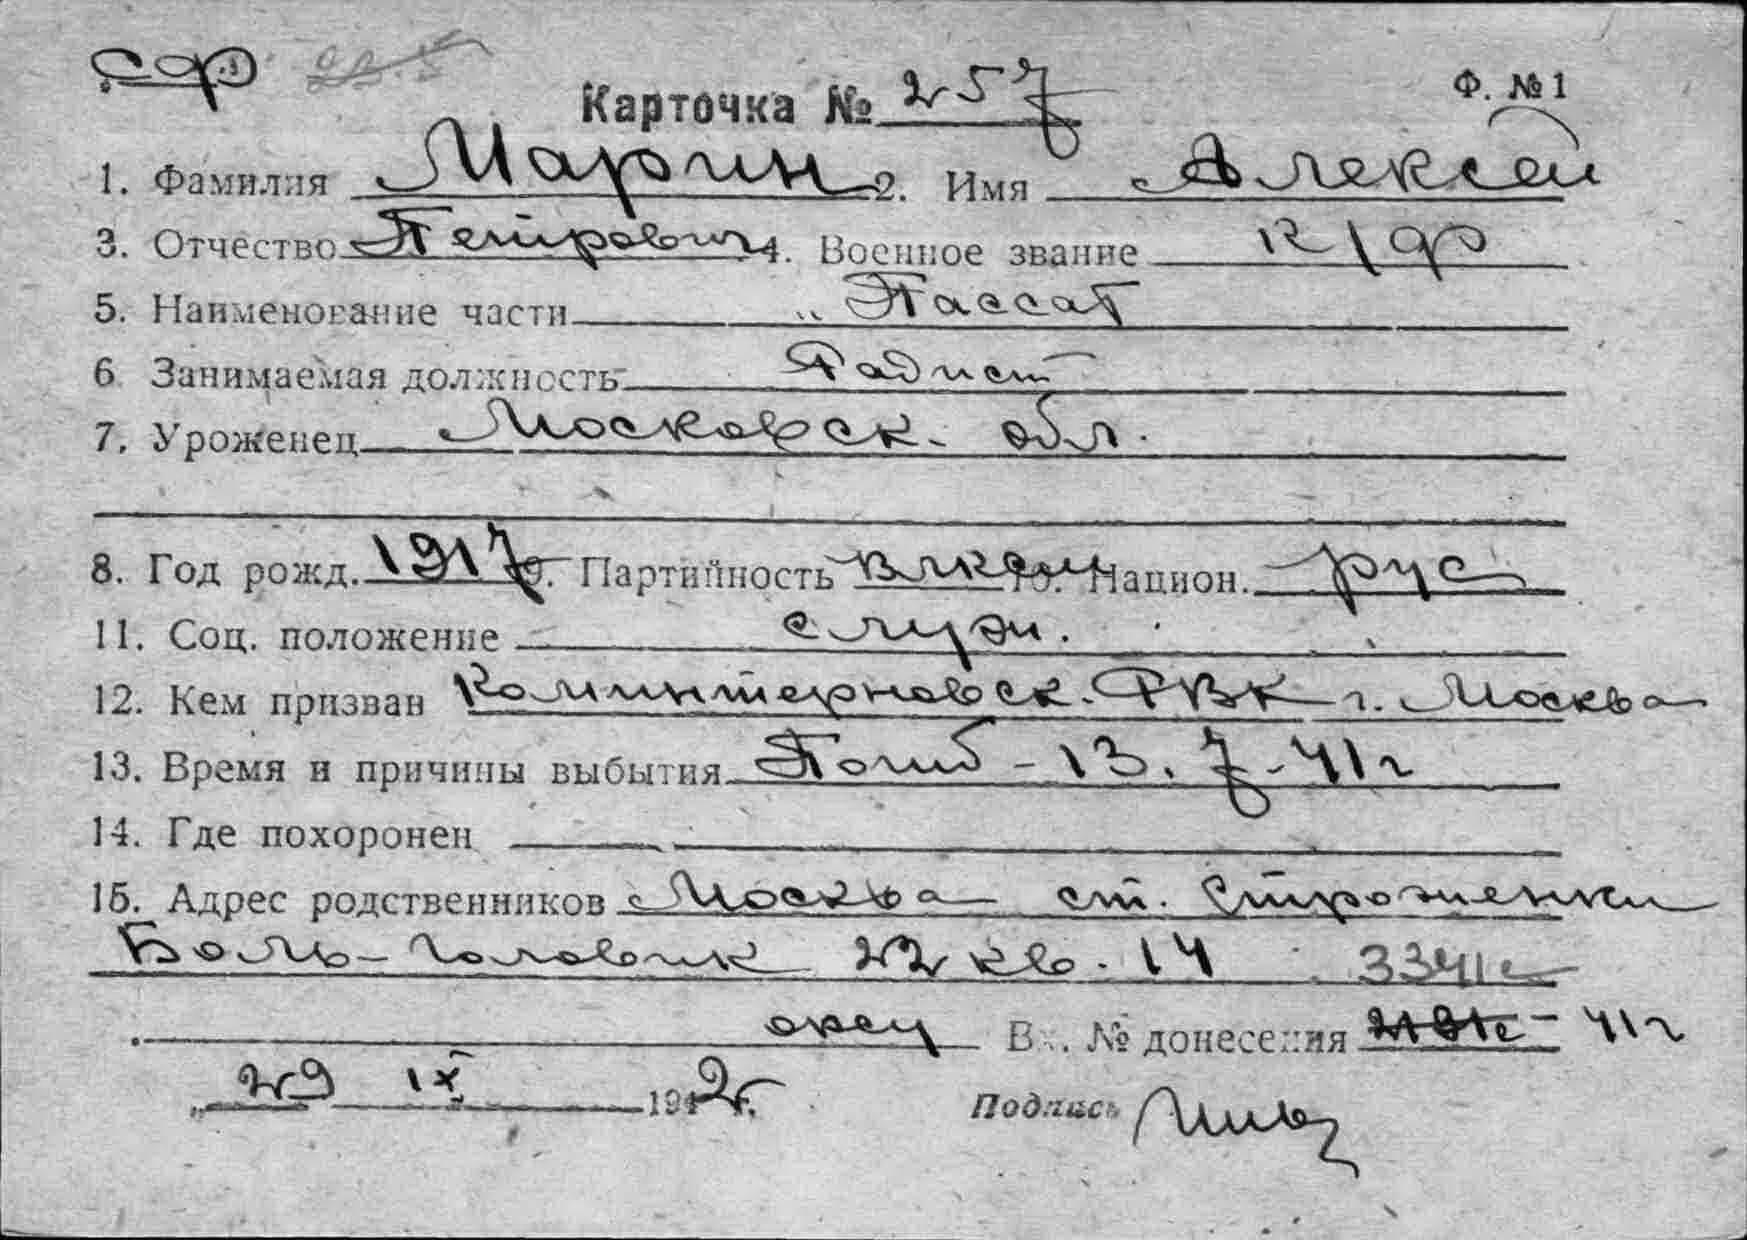 СФ
Карточка № 257 Ф. №1
1. Фамилия Марин 2. Имя Алексей
3. Отчество Петрович 4. Военное звание к/ф
5. Наименование части „Пассат
6 Занимаемая должность Радист
7. Уроженец Московск. обл.
8. Год рожд. 1917 9. Партийность влксм 10. Национ. рус
11. Соц. положение служ.
12. Кем призван Коминтерновск. РВК г. Москва
13. Время и причины выбытия Погиб - 13.7-41г
14. Где похоронен
15. Адрес родственников Москва ст.
Боль- Головик 22 кв. 14 334с
Вх. № донесения 41г
„29 IX 1942г.
Подпись